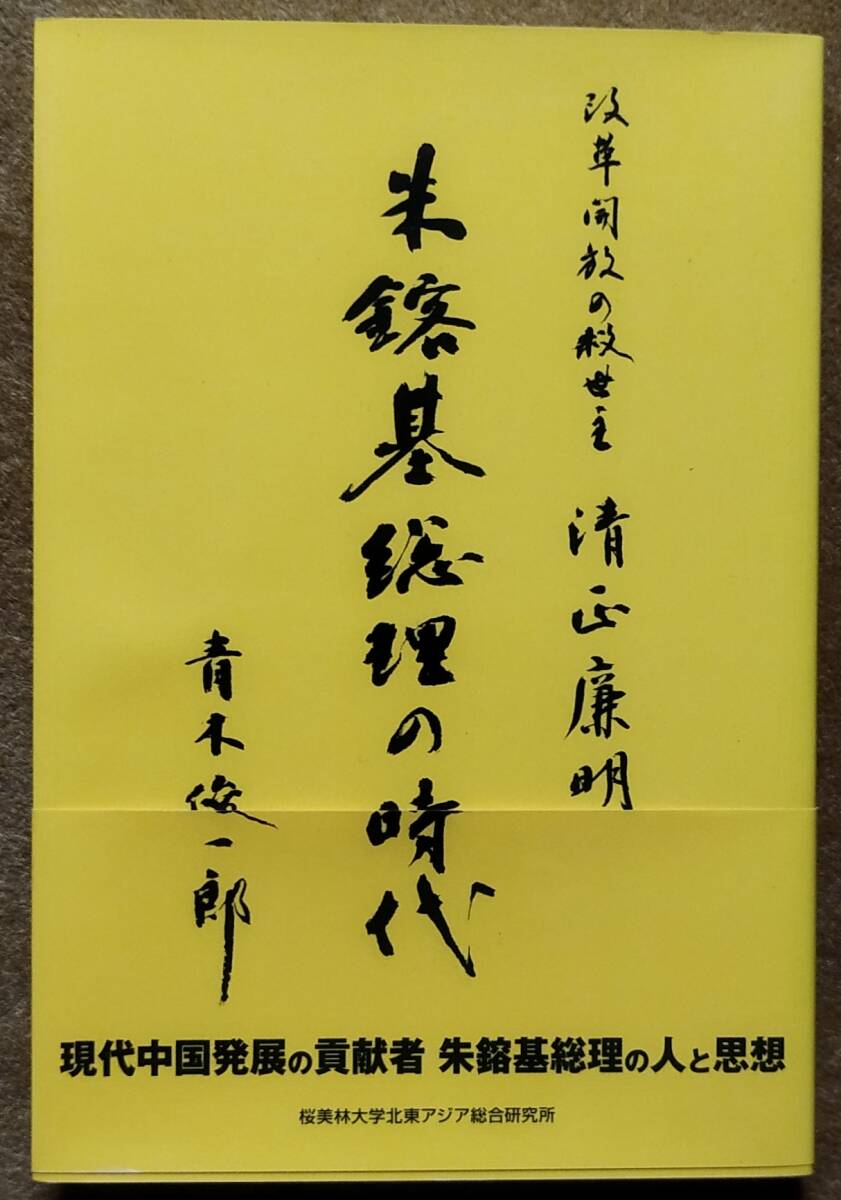 改革開放の救世主 清正廉明
朱鎔基総理の時代
青木俊一郎
現代中国発展の貢献者 朱鎔基総理の人と思想
桜美林大学北東アジア総合研究所